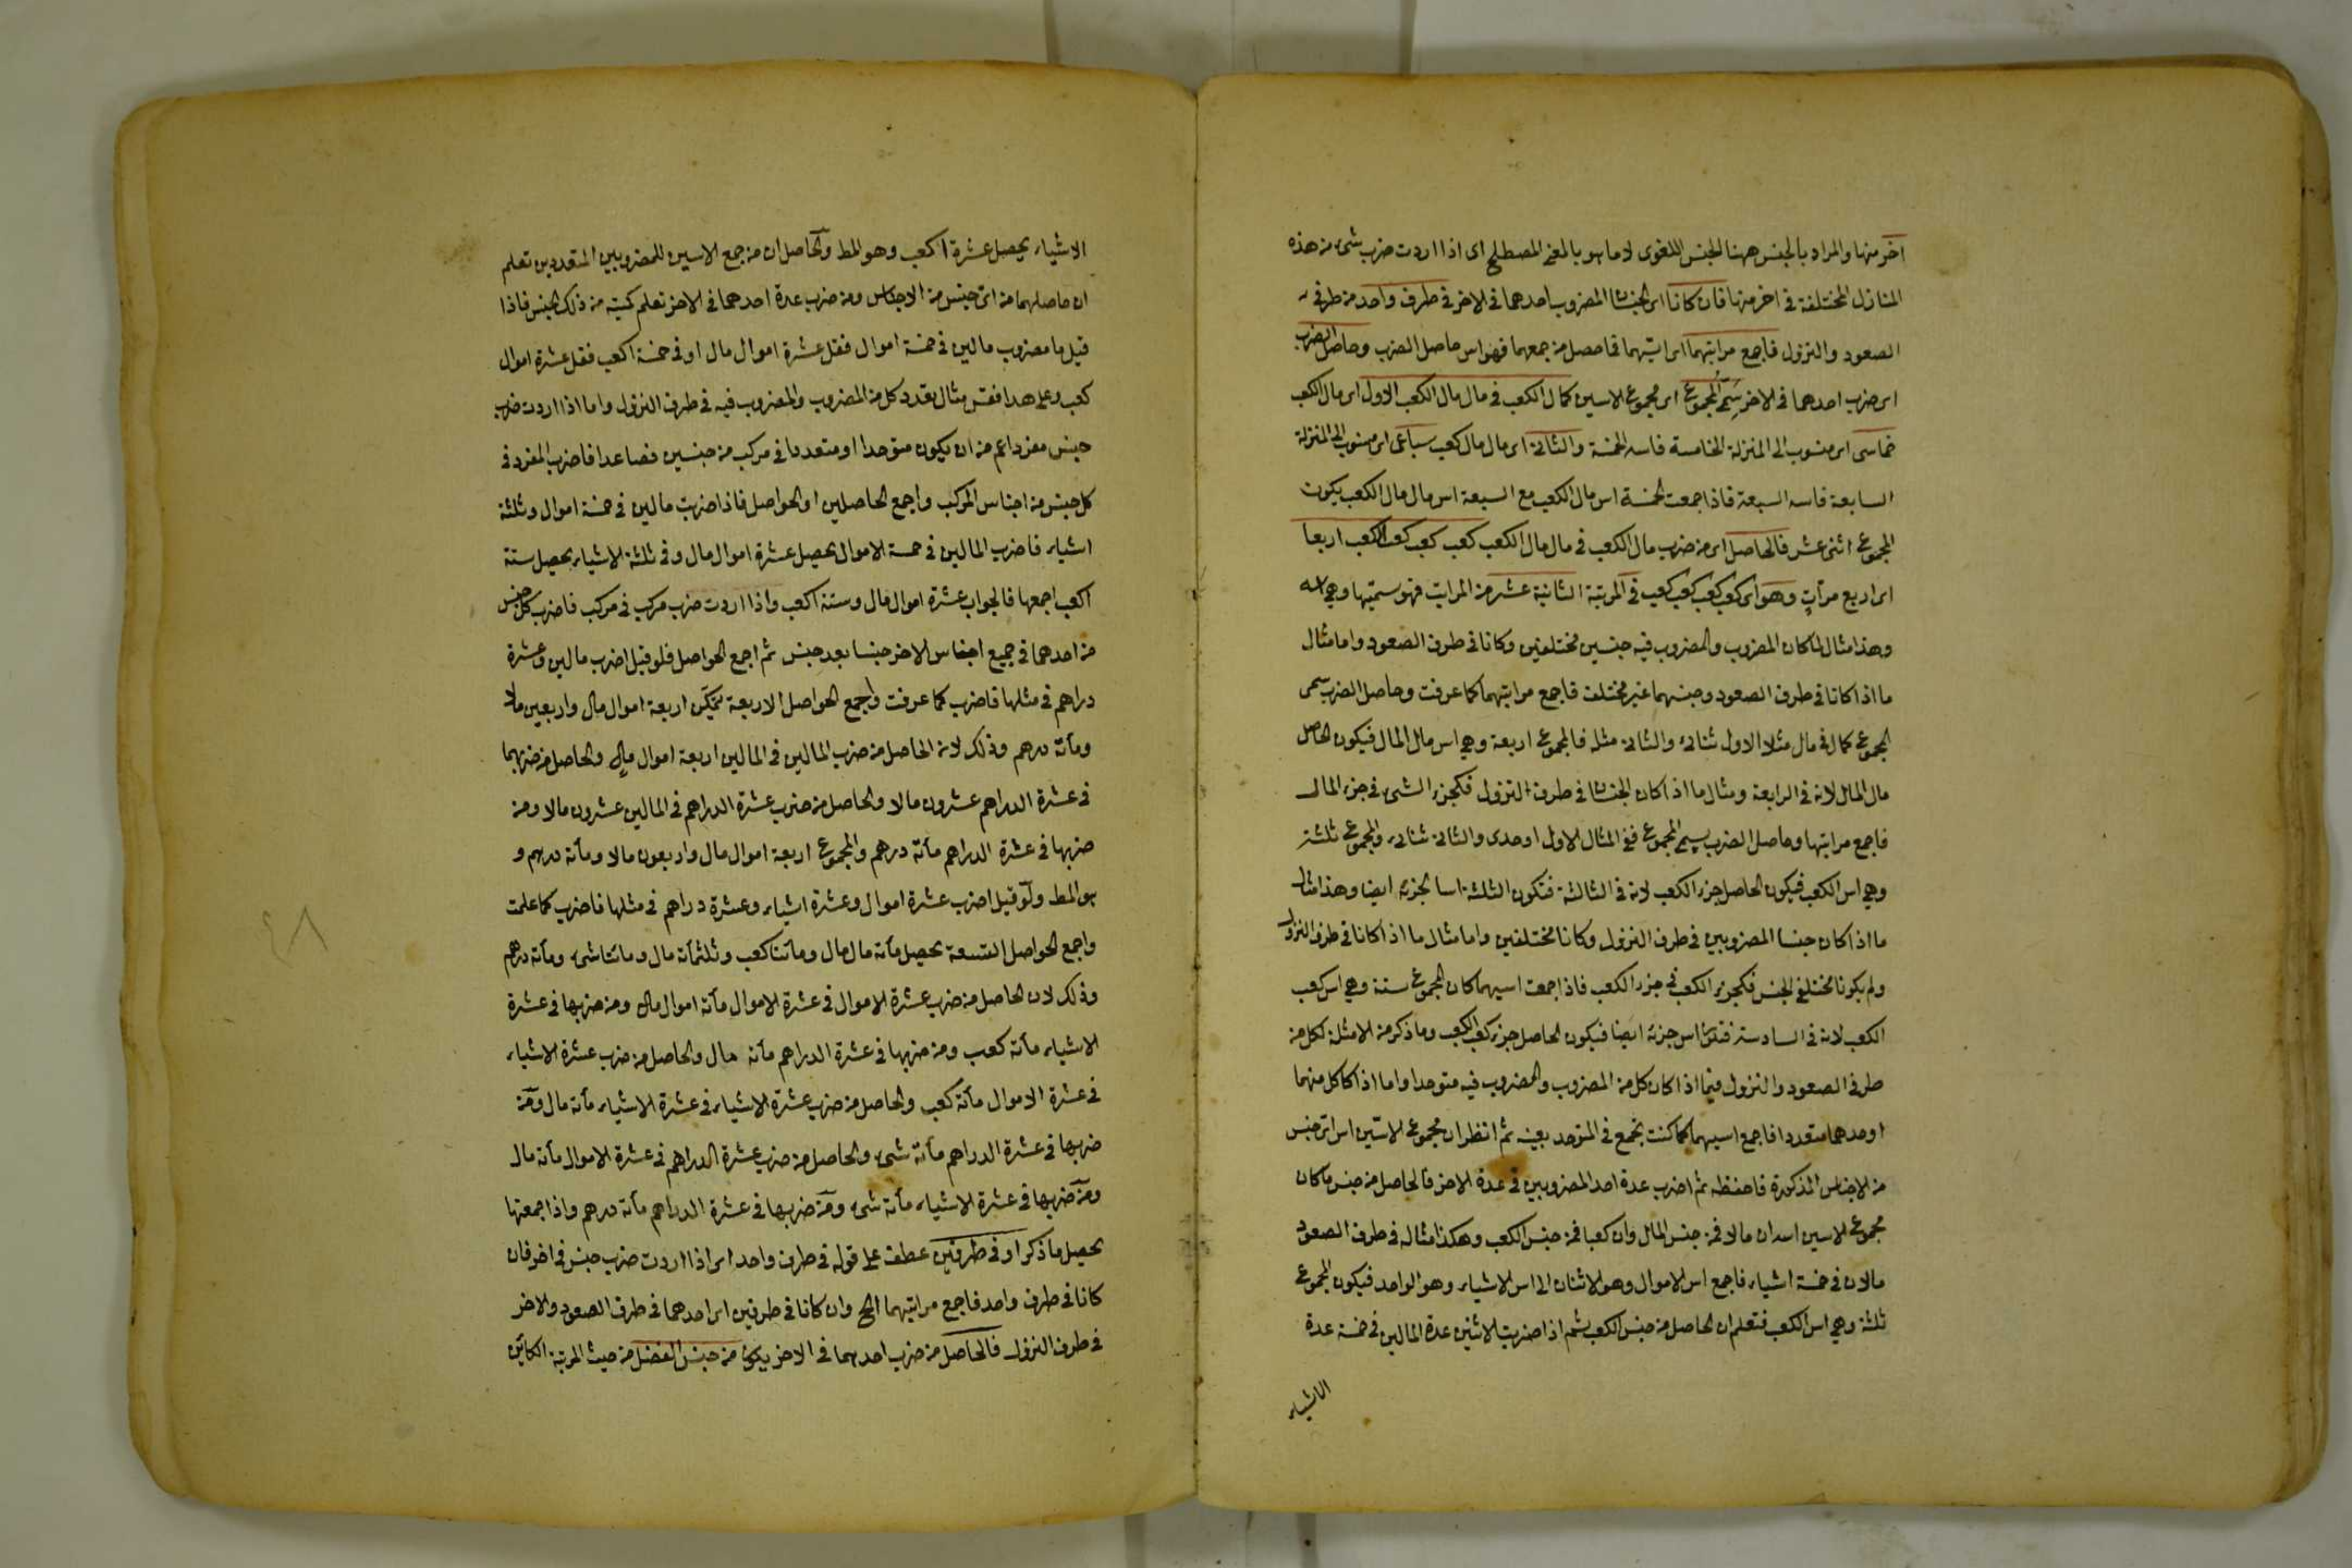 اخر منها والمراد بالجنس ههنا الجنس اللغوى لا ما هو بالمعنى المصطلح اى اذا اردت ضرب شئ من هذه
المنازل المختلفة فى اخر منها فان كانا اى الجنسان المضروب احدهما فى الاخر فى طرف واحد من طرفى
الصعود والنزول فاجمع مراتبهما اى اسيهما فما حصل من جمعهما فهو اس حاصل الضرب وحاصل الضرب
اى ضرب احدهما فى الاخر سمى المجموع اى مجموع الاسين كمال الكعب فى مال مال الكعب الاول اى مال الكعب
خماسى اى منسوب الى المنزلة الخامسة فاسه الخمسة والثانى اى مال مال كعب سباعى اى منسوب الى المنزلة
السابعة فاسه السبعة فاذا جمعت الخمسة اس مال الكعب مع السبعة اس مال مال الكعب يكون
المجموع اثنى عشر فالحاصل اى من ضرب مال الكعب فى مال مال الكعب كعب كعب كعب الكعب اربعا
اى اربع مرات وهو اى كعب كعب كعب كعب فى المرتبة الثانية عشر من المراتب فهو سميتها وهى
وهذا مثال لما كان المضروب والمضروب فيه جنسين مختلفين وكانا فى طرف الصعود واما مثال
ما اذا كانا فى طرف الصعود وجنسهما غير مختلف فاجمع مراتبهما كما عرفت وحاصل الضرب سمى
المجموع كمال فى مال مثلا الاول ثنائى والثانى مثله فالمجموع اربعة وهى اس مال المال فيكون الحاصل
مال المال لانه فى الرابعة ومثال ما اذا كان الجنسان فى طرف النزول فكجزء الشئ فى جزء المال
فاجمع مراتبها وحاصل الضرب سمى المجموع ففى المثال الاول احدى والثانى ثنائى والمجموع ثلثة
وهى اس الكعب فيكون الحاصل جزء الكعب لانه فى الثالثة فتكون الثلثة اسا لجزئه ايضا وهذا مثال
ما اذا كان جنسا المضروبين فى طرف النزول وكانا مختلفين واما مثال ما اذا كانا فى طرف النزول
ولم يكونا مختلفى الجنس فكجزء الكعب فى جزء الكعب فاذا جمعت اسيهما كان المجموع ستة وهى اس كعب
الكعب لانه فى السادسة فتكون اس جزئه ايضا فيكون الحاصل جزء كعب الكعب وما ذكر من الامثلة لكل من
طرفى الصعود والنزول فيما اذا كان كل من المضروب والمضروب فيه متوحدا واما اذا كان كل منهما
او احدهما متعددا فاجمع اسيهما كما كنت تجمع فى المتوحد بعينه ثم انظر ان مجموع الاسين اس اى جنس
من الاجناس المذكورة فاحفظه ثم اضرب عدة احد المضروبين فى عدة الاخر فالحاصل من جنس ما كان
مجموع الاسين اسه ان مالا فمن جنس المال وان كعبا فمن جنس الكعب وهكذا مثاله فى طرف الصعود
مالان فى خمسة اشياء فاجمع اس الاموال وهو الاثنان الى اس الاشياء وهو الواحد فيكون المجموع
ثلثة وهى اس الكعب فتعلم ان الحاصل من جنس الكعب ثم اذا ضربت الاثنين عدة المالين فى خمسة عدة
الاشياء
الاشياء يحصل عشرة اكعب وهو المط والحاصل ان من جمع الاسين للمضروبين المتعددين تعلم
ان حاصلهما من اى جنس من الاجناس ومن ضرب عدة احدهما فى الاخر تعلم كميته من ذلك الجنس فاذا
قيل ما مضروب مالين فى خمسة اموال فقل عشرة اموال مال او فى خمسة اكعب فقل عشرة اموال
كعب وعلى هذا فقس مثال تعدد كل من المضروب والمضروب فيه فى طرف النزول واما اذا اردت ضرب
جنس مفرد اعم من ان يكون متوحدا او متعددا فى مركب من جنسين فصاعدا فاضرب المفرد فى
كل جنس من اجناس المركب واجمع الحاصلين او الحواصل فاذا ضربت مالين فى خمسة اموال وثلثة
اشياء فاضرب المالين فى خمسة الاموال يحصل عشرة اموال مال وفى ثلثة الاشياء يحصل ستة
اكعب اجمعها فالجواب عشرة اموال مال وستة اكعب واذا اردت ضرب مركب فى مركب فاضرب كل جنس
من احدهما فى جميع اجناس الاخر جنسا بعد جنس ثم اجمع الحواصل فلو قيل اضرب مالين وعشرة
دراهم فى مثلها فاضرب كما عرفت واجمع الحواصل الاربعة اربعة اموال مال واربعين مالا
ومأة درهم وذلك لان الحاصل من ضرب المالين فى المالين اربعة اموال مال والحاصل من ضربهما
فى عشرة الدراهم عشرون مالا والحاصل من ضرب عشرة الدراهم فى المالين عشرون مالا ومن
ضربها فى عشرة الدراهم مأة درهم والمجموع اربعة اموال مال واربعون مالا ومأة درهم و
هو المط ولو قيل اضرب عشرة اموال وعشرة اشياء وعشرة دراهم فى مثلها فاضرب كما علمت
واجمع الحواصل التسعة يحصل مأة مال مال ومأتا كعب وثلثمأة مال ومأتا شئ ومأة درهم
وذلك لان الحاصل من ضرب عشرة الاموال فى عشرة الاموال مأة اموال مال ومن ضربها فى عشرة
الاشياء مأة كعب ومن ضربها فى عشرة الدراهم مأة مال والحاصل من ضرب عشرة الاشياء
فى عشرة الاموال مأة كعب والحاصل من ضرب عشرة الاشياء فى عشرة الاشياء مأة مال ومن
ضربها فى عشرة الدراهم مأة شئ والحاصل من ضرب عشرة الدراهم فى عشرة الاموال مأة مال
ومن ضربها فى عشرة الاشياء مأة شئ ومن ضربها فى عشرة الدراهم مأة درهم واذا جمعتها
يحصل ما ذكر او فى طرفين عطف على قوله فى طرف واحد اى اذا اردت ضرب جنس فى اخر فان
كانا فى طرف واحد فاجمع مراتبهما الخ وان كانا فى طرفين اى احدهما فى طرف الصعود والاخر
فى طرف النزول فالحاصل من ضرب احدهما فى الاخر يكون من جنس الفضل من حيث المرتبة الكائن
٤٨